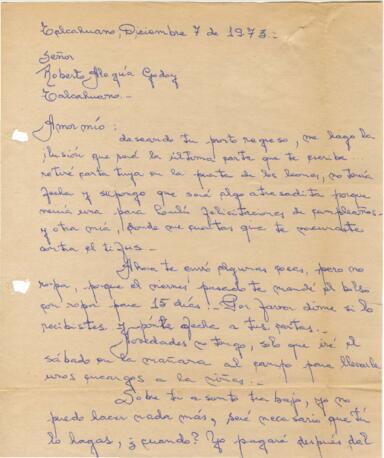 Talcahuano, Diciembre 7 de 1973.-
Señor
Roberto Alogía Godoy
Talcahuano.-
Amor mío:
deseando tu pronto regreso, me hago la
ilusión que será la última carta que te escribo...
retiré carta tuya en la puerta de los leones, no tenía
fecha y supongo que será algo atrasadita porque
venía una para felicitaciones de cumpleaños
y otra mía, donde me cuentas que te vacunaste
contra el tifus.-
Ahora te envío algunas cosas, pero no
ropa, porque el miércoles pasado te mandé el bolso
con ropa para 15 días.- Por favor dime si lo
recibistes y pónle fecha a tus cartas.-
Novedades no tengo, sólo que iré el
sábado en la mañana al campo para llevarle
unos encargos a la niñas.-
Sobre tu asunto trabajo, yo no
puedo hacer nada más, será necesario que tú
lo hagas, ¿cuando? Yo pagaré después del